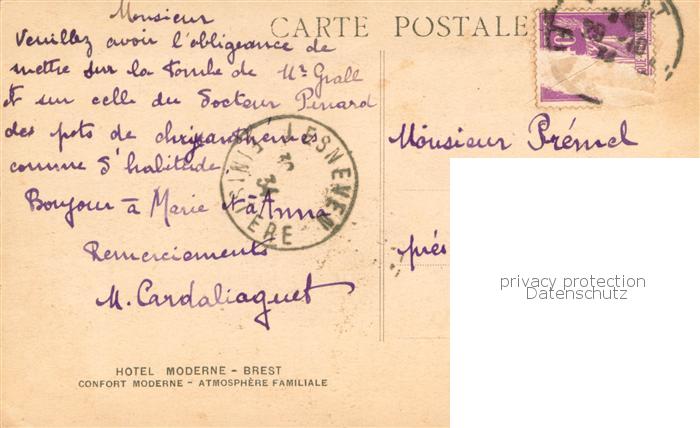 CARTE POSTALE
Monsieur
Veuillez avoir l'obligeance de
mettre sur la tombe de Mr Grall
et sur celle du Docteur Pinard
des pots de chrysanthémes
comme d'habitude
Bonjour à Marie et à Anna
Remerciements
M. Cardaliaguet
HOTEL MODERNE - BREST
CONFORT MODERNE - ATMOSPHÈRE FAMILIALE
LESNEVEN
FINISTERE
Monsieur Prémel
près
privacy protection
Datenschutz